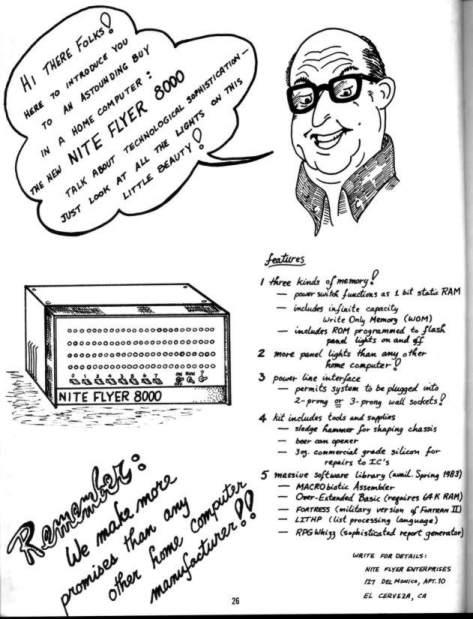 HI THERE FOLKS!
HERE TO INTRODUCE YOU
TO AN ASTOUNDING BUY
IN A HOME COMPUTER:
THE NEW NITE FLYER 8000
TALK ABOUT TECHNOLOGICAL SOPHISTICATION—
JUST LOOK AT ALL THE LIGHTS ON THIS
LITTLE BEAUTY!
NITE FLYER 8000
features
1 three kinds of memory!
— power switch functions as 1 bit static RAM
— includes infinite capacity
Write Only Memory (WOM)
— includes ROM programmed to flash
panel lights on and off
2 more panel lights than any other
home computer!
3 power line interface
— permits system to be plugged into
2-prong or 3-prong wall sockets!
4 kit includes tools and supplies
— sledge hammer for shaping chassis
— beer can opener
— 3 commercial grade silicon for
repairs to IC's
5 massive software library (avail. Spring 1983)
— MACRObiotic Assembler
— Over-Extended Basic (requires 64K RAM)
— FORTRESS (military version of FORTRAN II)
— LITHP (list processing language)
— RPG Whizz (sophisticated report generator)
Remember:
We make more
promises than any
other home computer
manufacturer!!
WRITE FOR DETAILS:
NITE FLYER ENTERPRISES
127 DEL MONICO, APT. 10
EL CERVEZA, CA
26